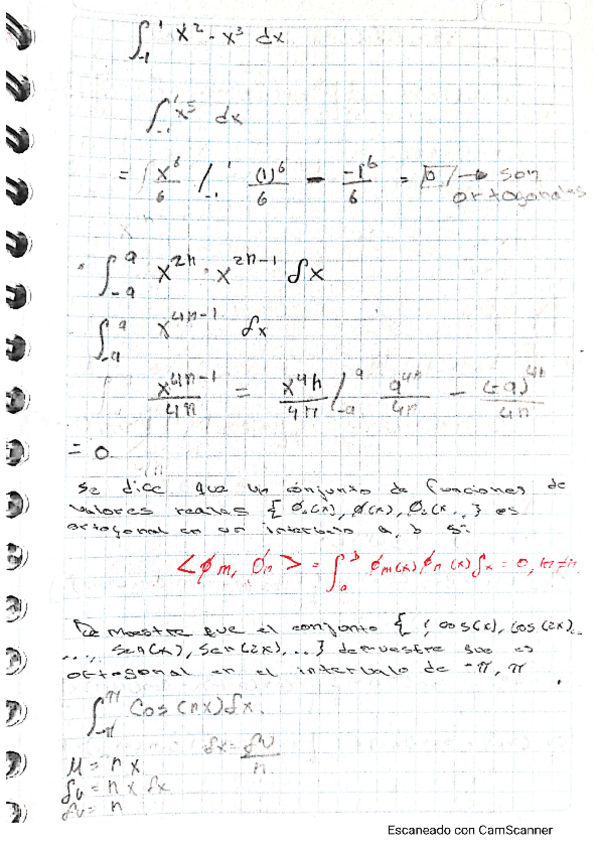 ∫₋₁¹ x² · x³ dx
∫₋₁¹ x⁵ dx
= x⁶/6 /₋₁¹ (1)⁶/6 − −1⁶/6 = 0 → son
ortogonales
∫₋ₐᵃ x²ⁿ · x²ⁿ⁻¹ dx
∫₋ₐᵃ x⁴ⁿ⁻¹ dx
x⁴ⁿ⁻¹/4n = x⁴ⁿ/4n /₋ₐᵃ a⁴ⁿ/4n − (−a)⁴ⁿ/4n
= 0
Se dice que un conjunto de funciones de
valores reales { ∅₀(x), ∅(x), ∅₂(x..., } es
ortogonal en un intervalo a, b si:
<∅m, ∅n> = ∫ₐᵇ ∅m(x) ∅n(x) dx = 0, m≠n
Demuestre que el conjunto { 1, cos(x), cos(2x)...
..., sen(x), sen(2x), ... } demuestre que es
ortogonal en el intervalo de -π, π
∫₋π^π Cos(nx) dx.
dx = du/n
u = nx
du = nx dx
du = n
Escaneado con CamScanner